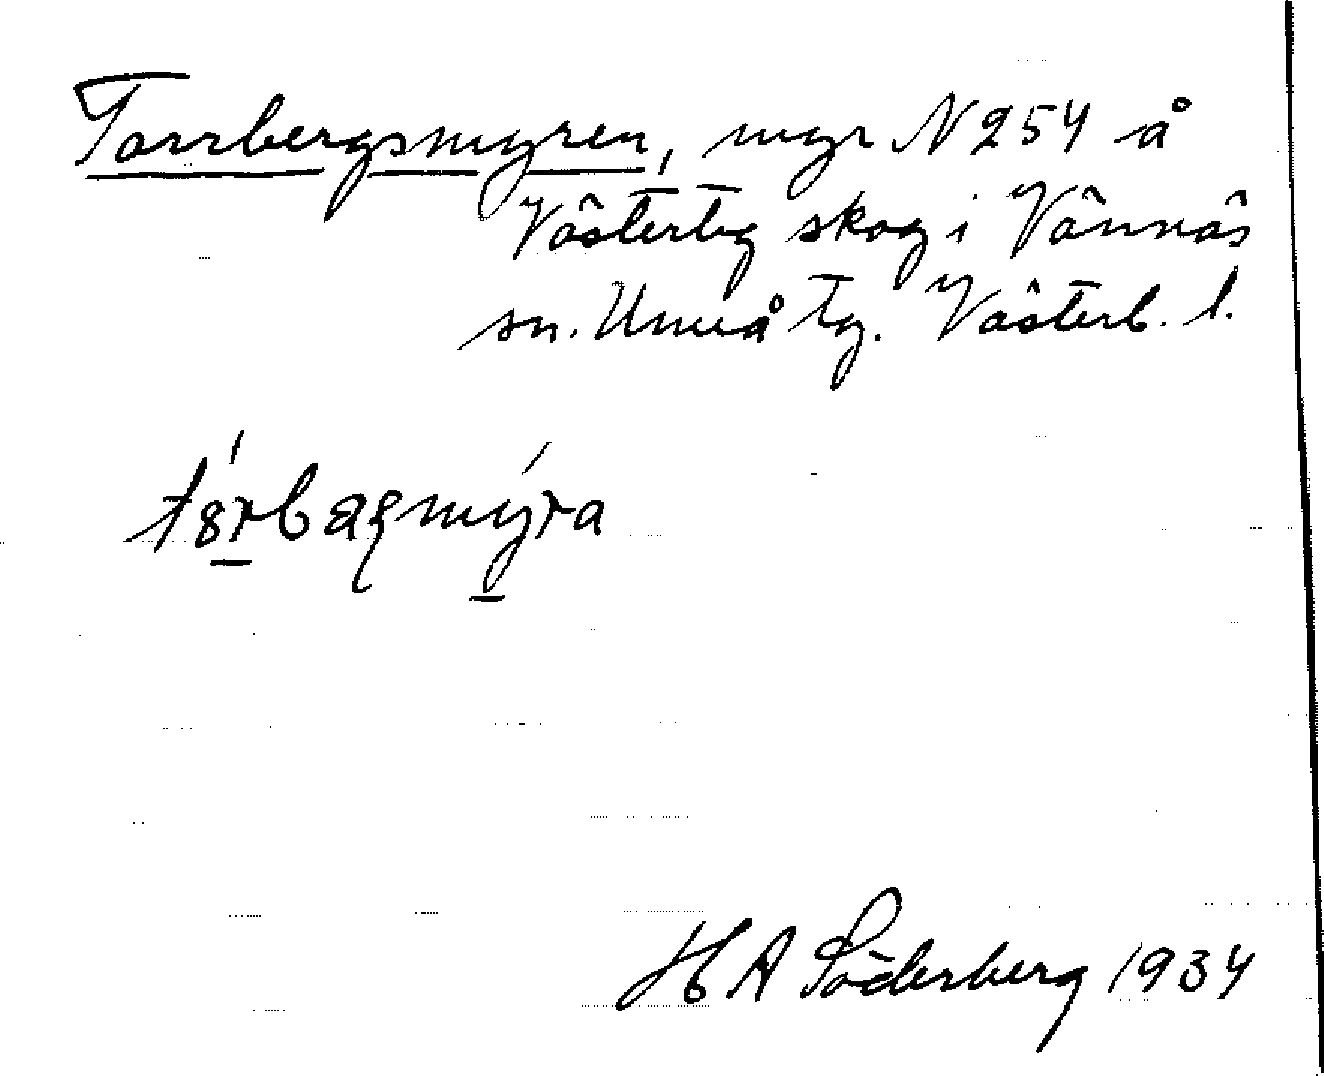 Torrbergsmyren, myr N 254 å
Västerteg skog i Vännäs
sn. Umeå tg. Västerb. l.
H A Söderberg 1934